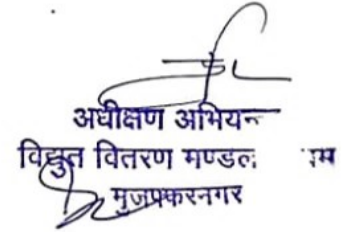 अधीक्षण अभियन
विद्युत वितरण मण्डल
मुजफ्फरनगर